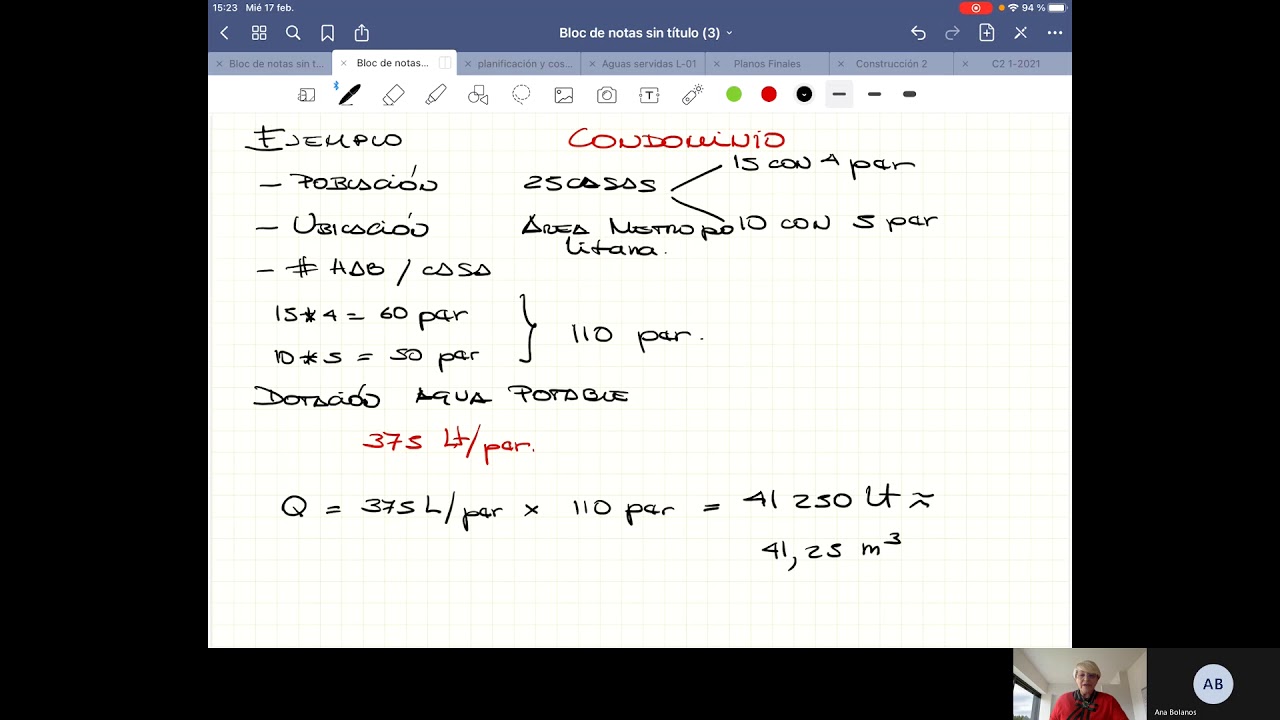 15:23 Mié 17 feb.
94 %
Bloc de notas sin título (3)
Bloc de notas sin t...
Bloc de notas...
planificación y cos...
Aguas servidas L-01
Planos Finales
Construcción 2
C2 1-2021
EJEMPLO CONDOMINIO
- POBLACIÓN 25 CASAS 15 CON 4 par
- UBICACIÓN ÁREA METROPO 10 CON 5 par
litana.
- # HAB / CASA
15*4 = 60 par
10*5 = 50 par } 110 par.
DOTACIÓN AGUA POTABLE
375 Lt/par.
Q = 375 L/par x 110 par = 41 250 Lt ≈
41,25 m³
AB
Ana Bolanos